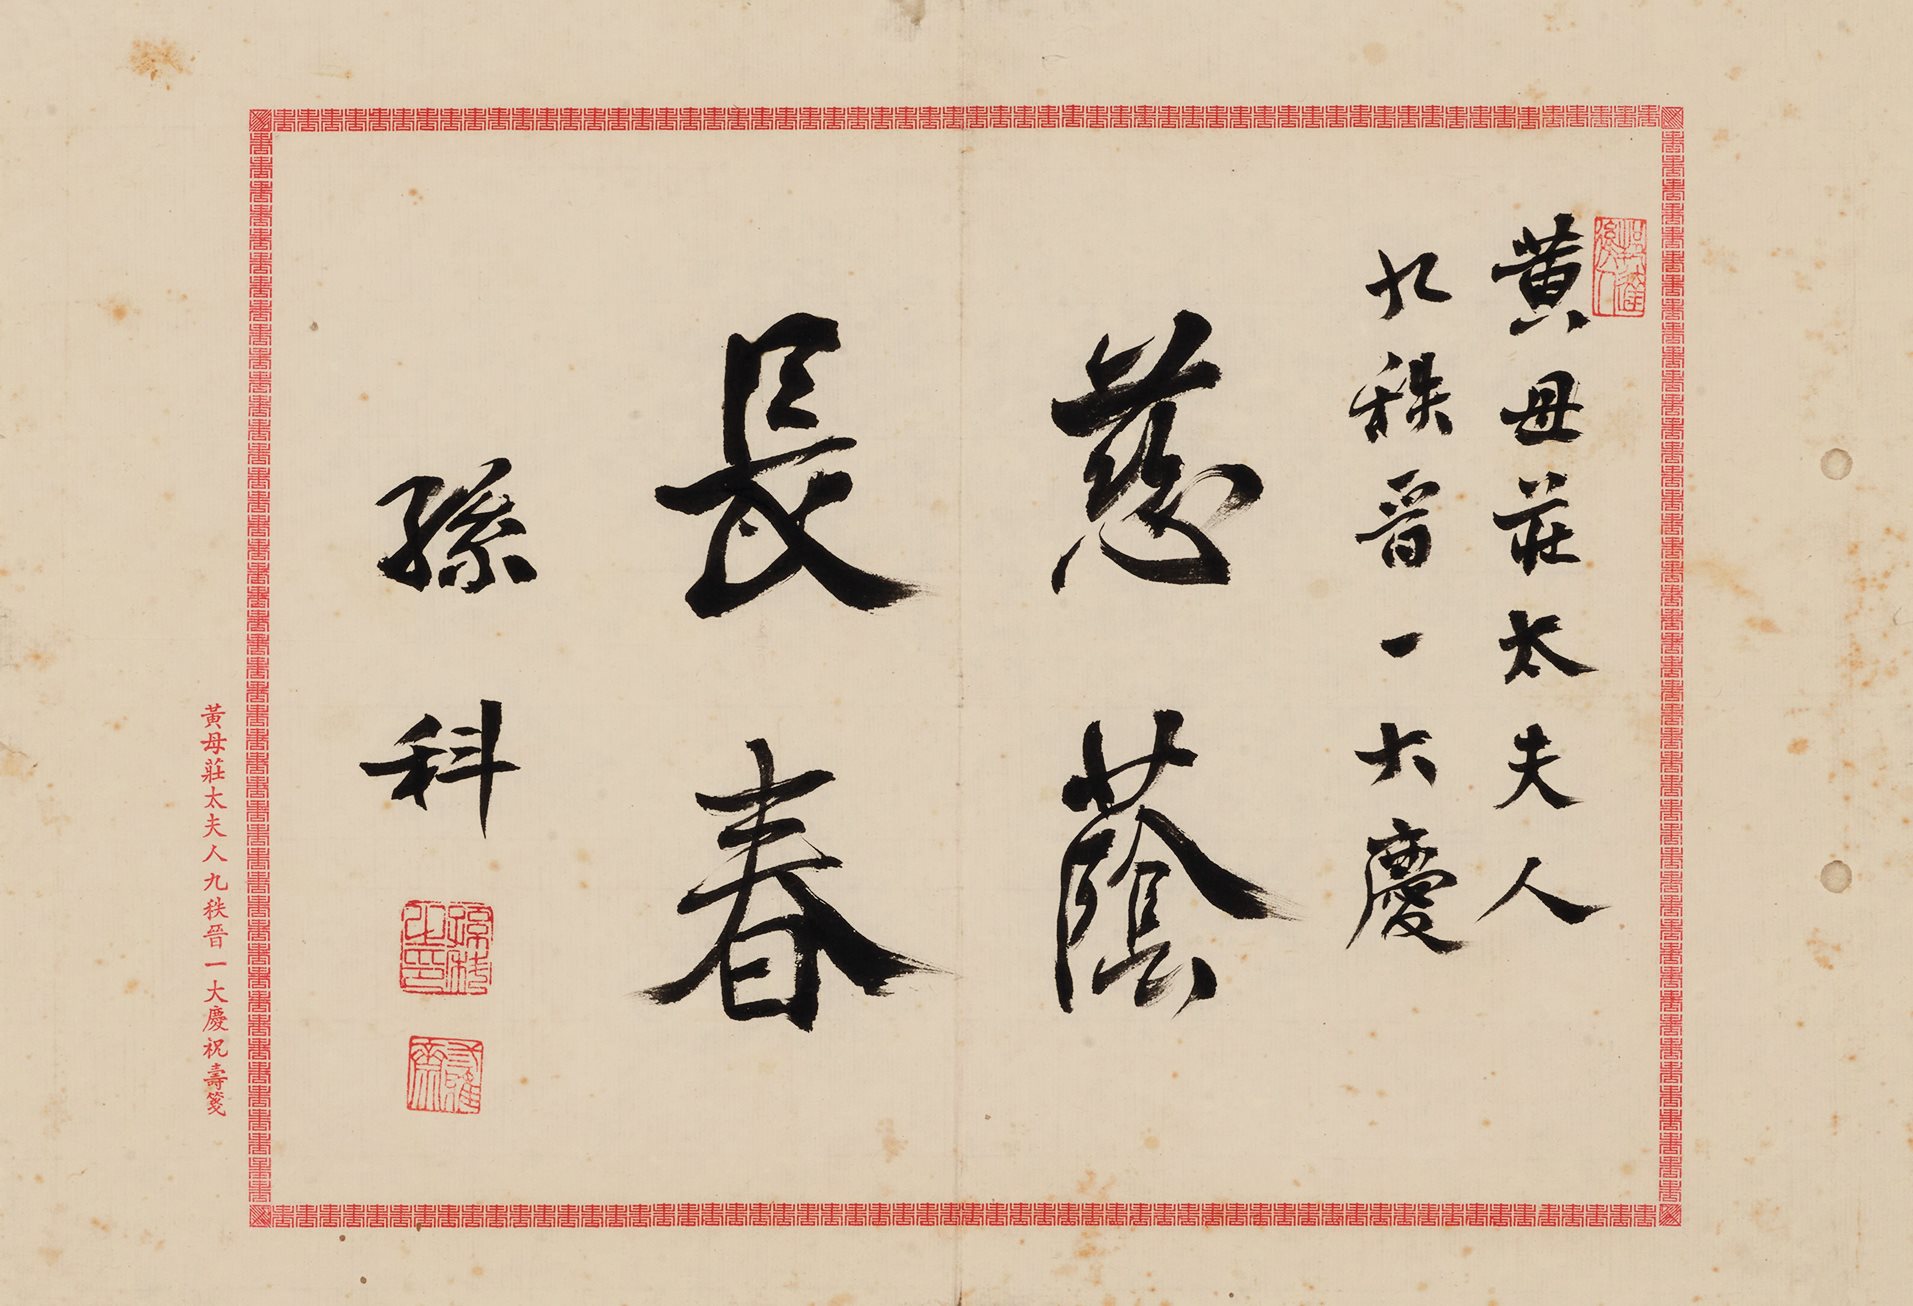 黃母莊太夫人
九秩晉一大慶
慈蔭
長春
孫科
孫科之印
黃母莊太夫人九秩晉一大慶祝壽箋